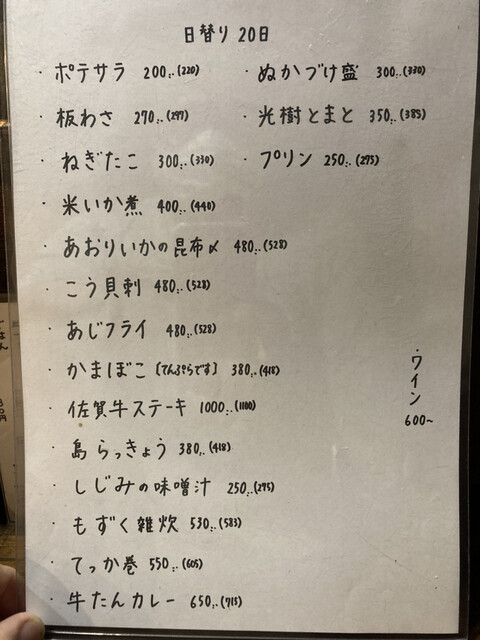 日替り 20日
・ポテサラ 200.-(220)
・板わさ 270.-(297)
・ねぎたこ 300.-(330)
・米いか煮 400.-(440)
・あおりいかの昆布〆 480.-(528)
・こう貝刺 480.-(528)
・あじフライ 480.-(528)
・かまぼこ〔てんぷらです〕 380.-(418)
・佐賀牛ステーキ 1000.-(1100)
・島らっきょう 380.-(418)
・しじみの味噌汁 250.-(275)
・もずく雑炊 530.-(583)
・てっか巻 550.-(605)
・牛たんカレー 650.-(715)
・ぬかづけ盛 300.-(330)
・光樹とまと 350.-(385)
・プリン 250.-(275)
・ワイン
600~